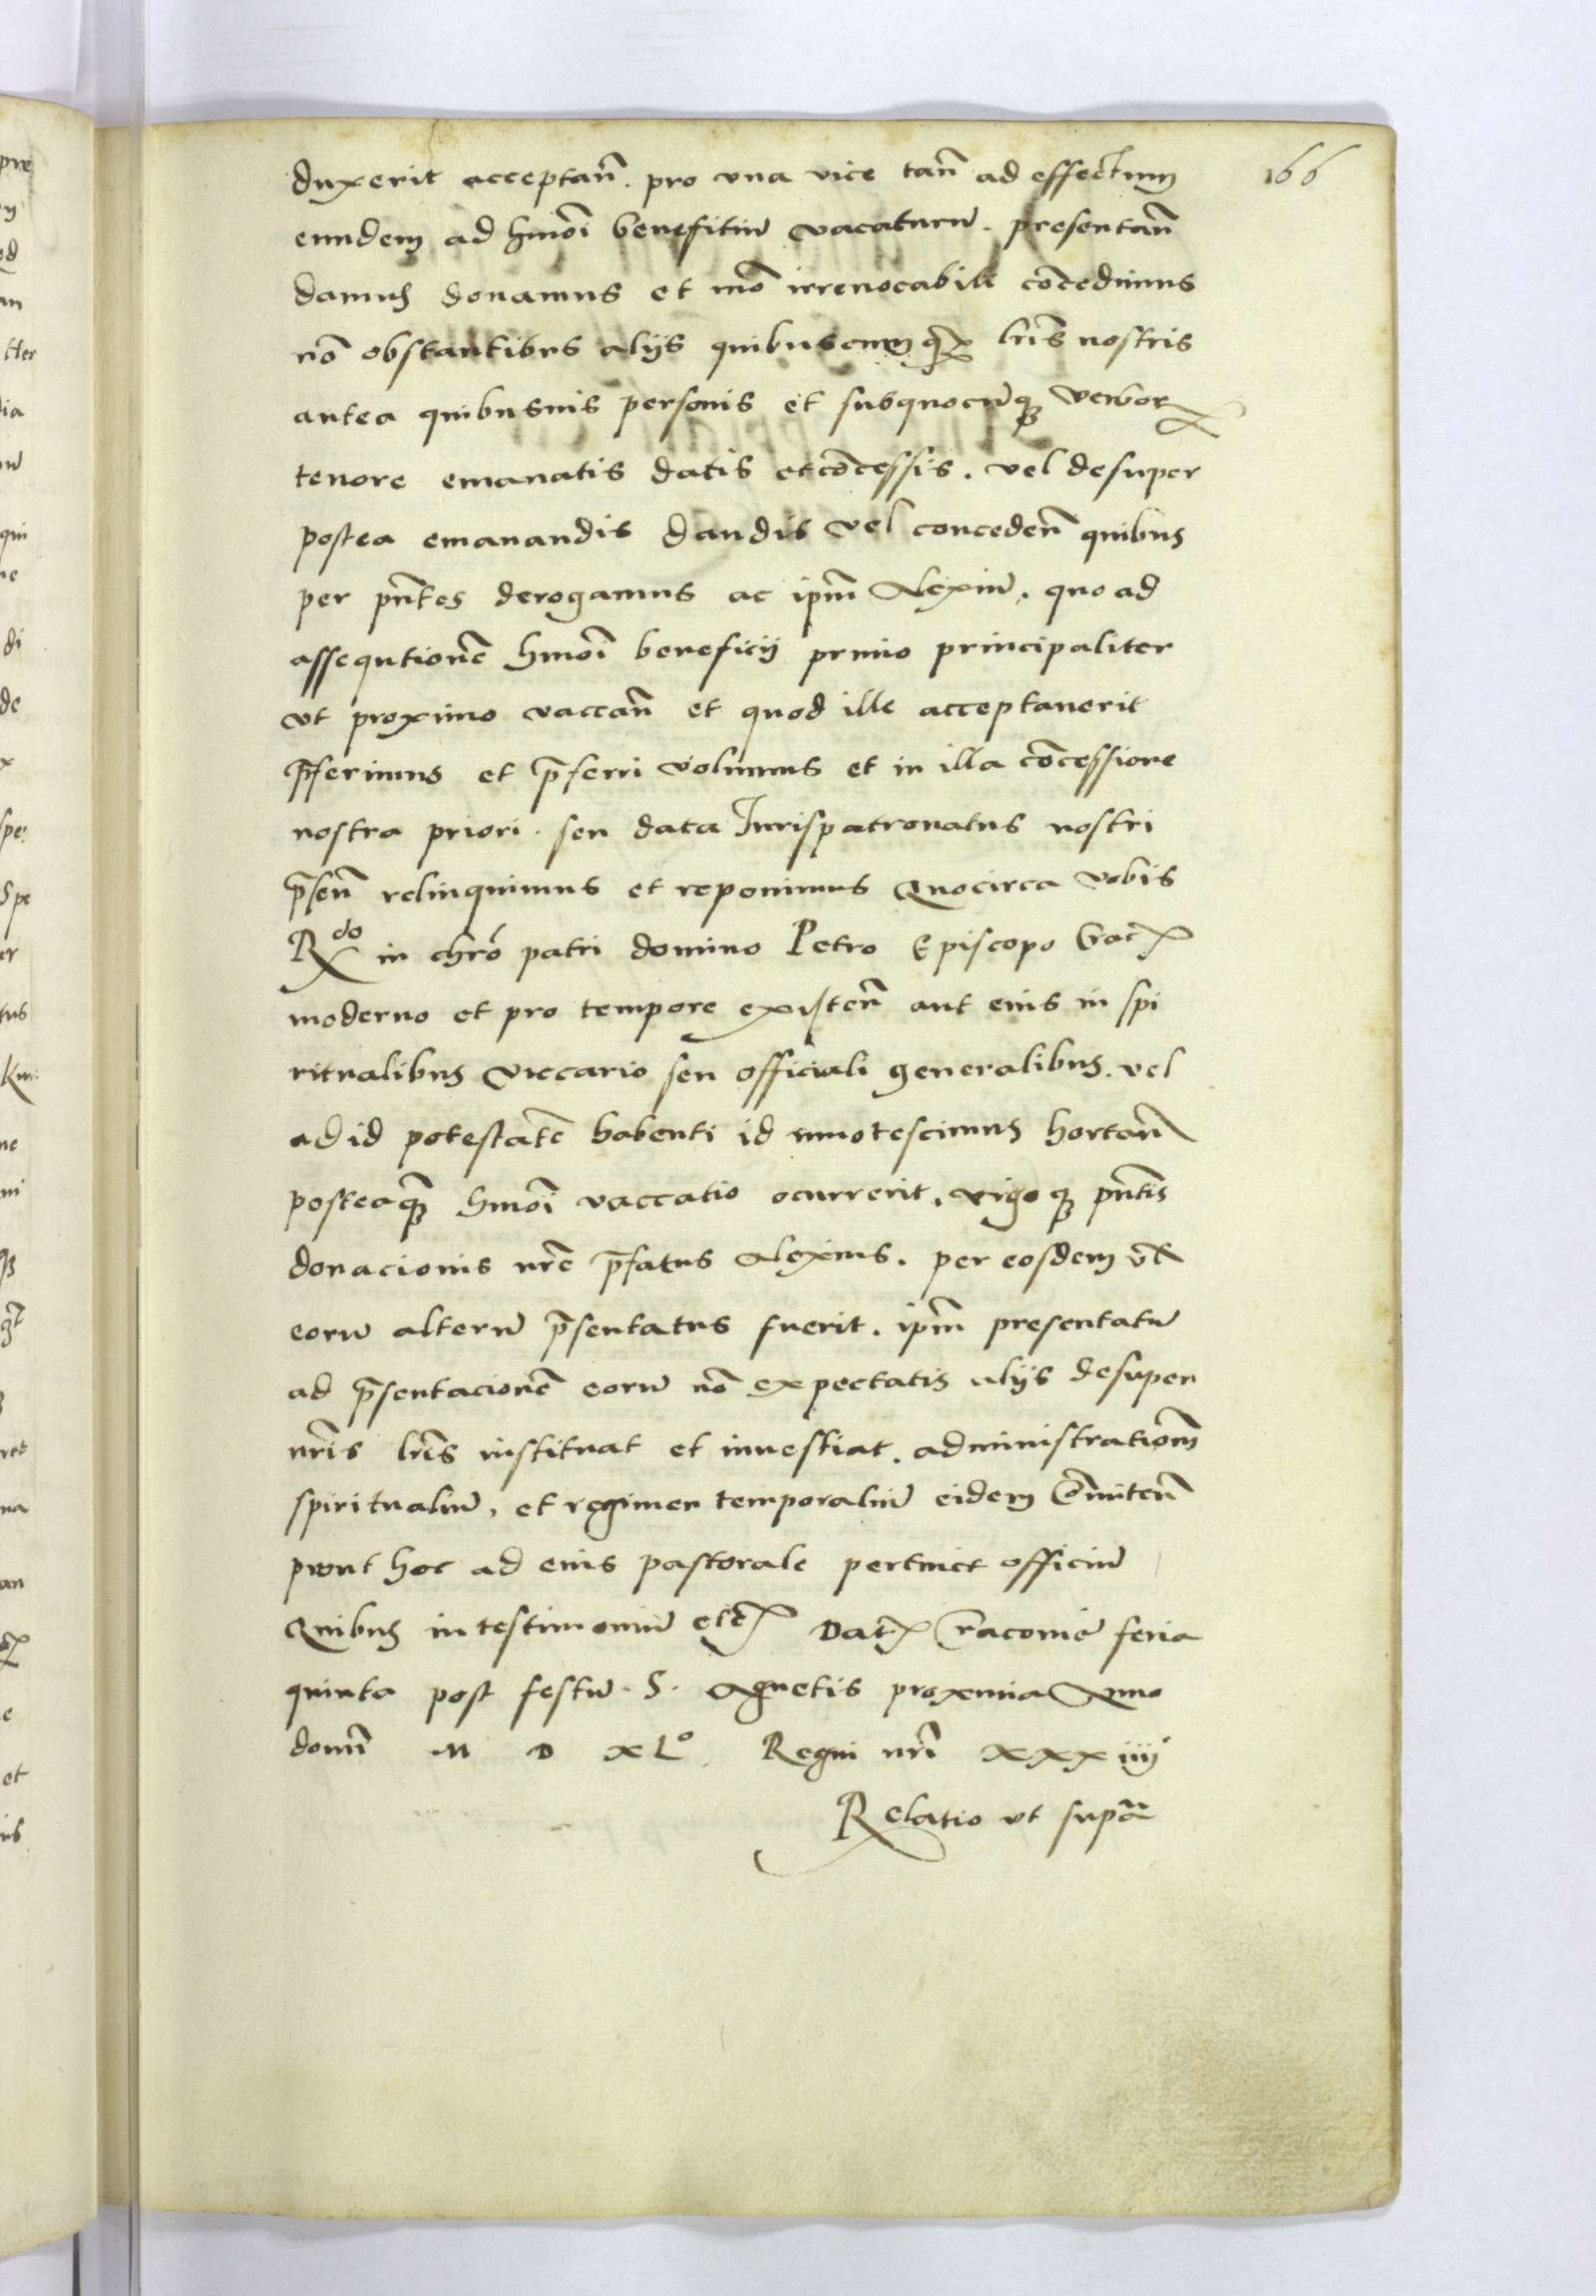 166
duxerit acceptan̄. pro vna vice tan̄ ad effectum
eundem ad hmōi benefitiū vacaturū. presentan̄
damus donamus et mō irreuocabili cōcedimus
nō obstantibus alijs quibuscumqꝫ lrīs nostris
antea quibusuis personis et subquocūqꝫ verborꝝ
tenore emanatis datis et cōcessis. vel desuper
postea emanandis dandis vel conceden̄ quibus
per pn̄tes derogamus ac ipm̄ Alexiū. quo ad
assequtionē hmōi beneficij primo principaliter
vt proximo vaccan̄ et quod ille acceptauerit
p̄ferimus et p̄ferri volumus et in illa cōcessione
nostra priori. seu data Jurispatronatus nostri
p̄sen̄ relinquimus et reponimus Quocirca vobis
Rdo in chrō patri domino Petro Episcopo Crac
moderno et pro tempore existen̄ aut eius in spi
ritualibus viccario seu officiali generalibus. vel
ad id potestatē habenti id innotescimus hortan̄
posteaqꝫ hmōi vaccatio ocurrerit. vigoqꝫ pn̄tis
donacionis nrē p̄fatus Alexius. per eosdem vl̄
eorū alterū p̄sentatus fuerit. ipm̄ presentatū
ad p̄sentacionē eorū nō expectatis alijs desuper
nrīs lrīs instituat et inuestiat. administrationē
spiritualiū, et regimen temporaliū eidem cōmiten̄
prout hoc ad eius pastorale pertinet officiū
Quibus in testimoniū etc̄ Dat Cracouiē feria
quinta post festū. S. Agnetis proxima Anno
domī M D XLo. Regni nrī xxxiiij
Relatio vt supā